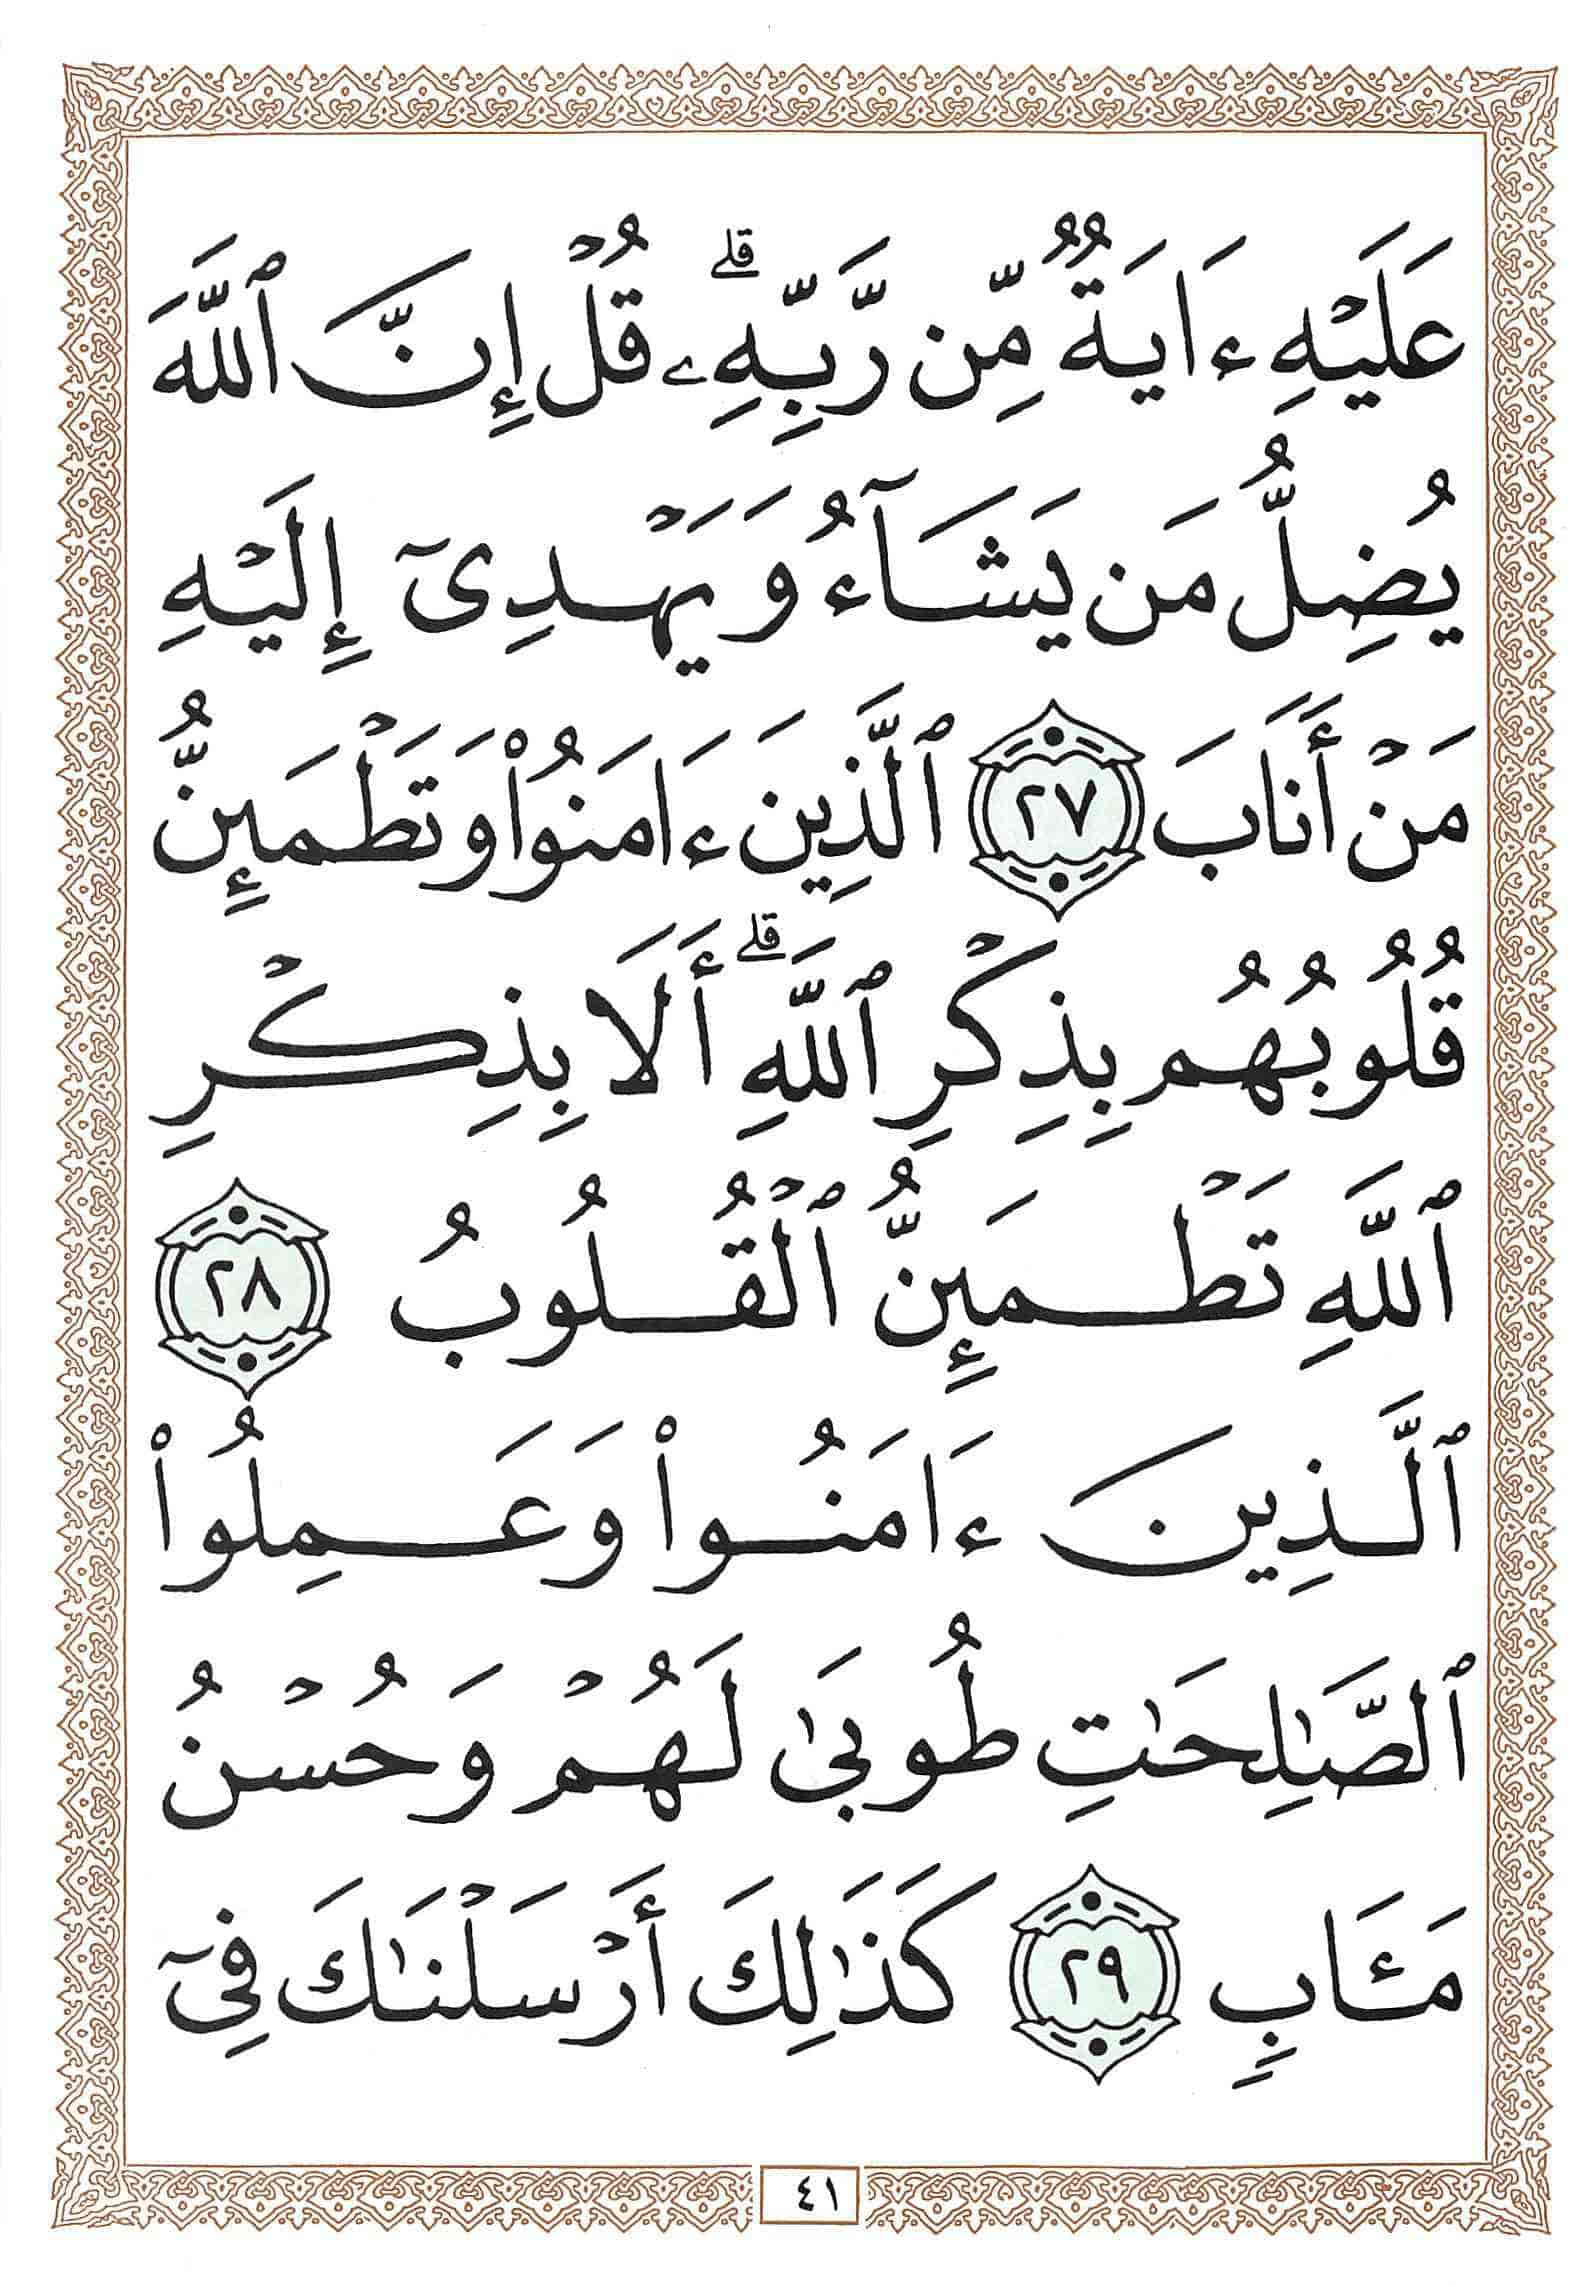 عَلَيْهِ ءَايَةٌ مِّن رَّبِّهِۦ ۗ قُلْ إِنَّ ٱللَّهَ
يُضِلُّ مَن يَشَآءُ وَيَهْدِىٓ إِلَيْهِ
مَنْ أَنَابَ ٢٧ ٱلَّذِينَ ءَامَنُوا۟ وَتَطْمَئِنُّ
قُلُوبُهُم بِذِكْرِ ٱللَّهِ ۗ أَلَا بِذِكْرِ
ٱللَّهِ تَطْمَئِنُّ ٱلْقُلُوبُ ٢٨
ٱلَّذِينَ ءَامَنُوا۟ وَعَمِلُوا۟
ٱلصَّـٰلِحَـٰتِ طُوبَىٰ لَهُمْ وَحُسْنُ
مَـَٔابٍ ٢٩ كَذَٰلِكَ أَرْسَلْنَـٰكَ فِىٓ
٤١